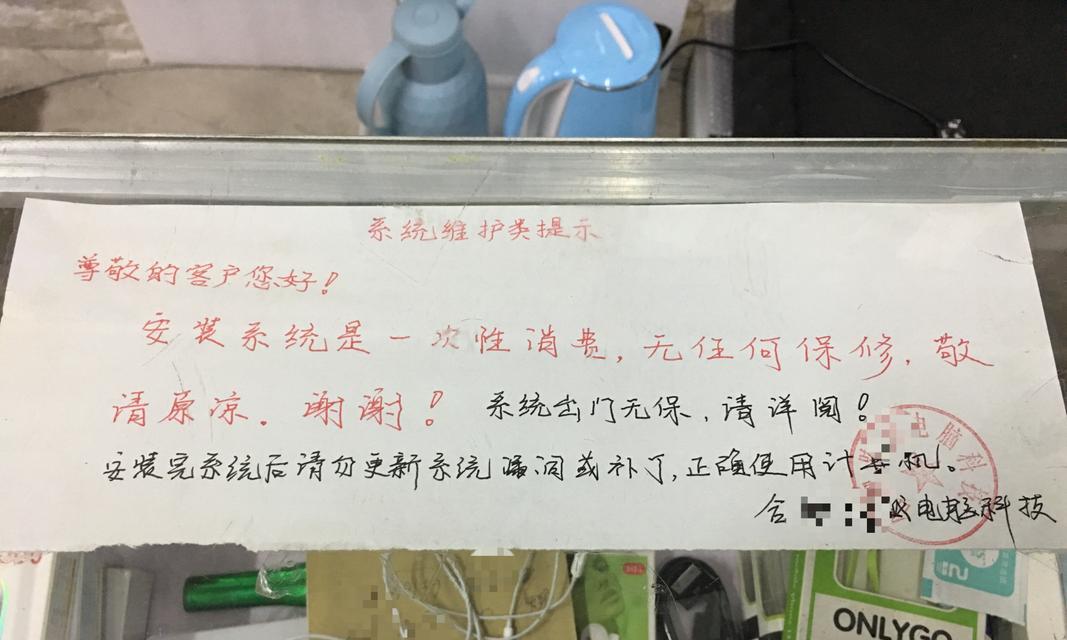 系统维护类提示
尊敬的客户您好！
安装系统是一次性消费，无任何保修，敬
请原凉．谢谢！系统出门无保，请详阅！
安装完系统后请勿更新系统漏洞或补丁，正确使用计算机。
合 电脑科技
电脑科技
ONLYGO